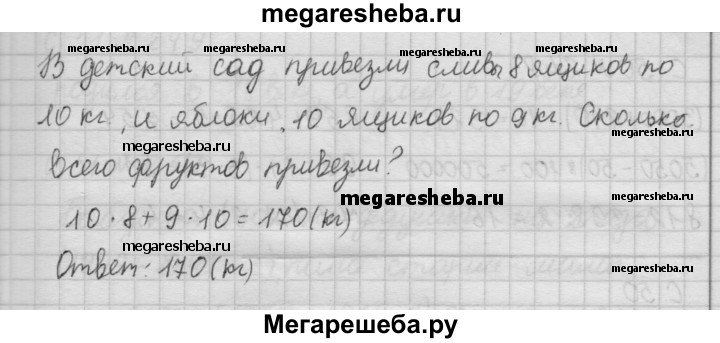 megaresheba.ru
megaresheba.ru
megaresheba.ru
В детский сад привезли сливы 8 ящиков по
megaresheba.ru
10 кг, и яблоки, 10 ящиков по 9 кг. Сколько
megaresheba.ru
megaresheba.ru
всего фруктов привезли?
megaresheba.ru
10 · 8 + 9 · 10 = 170 (кг)
megaresheba.ru
megaresheba.ru
Ответ: 170 (кг)
megaresheba.ru
Мегарешеба.ру